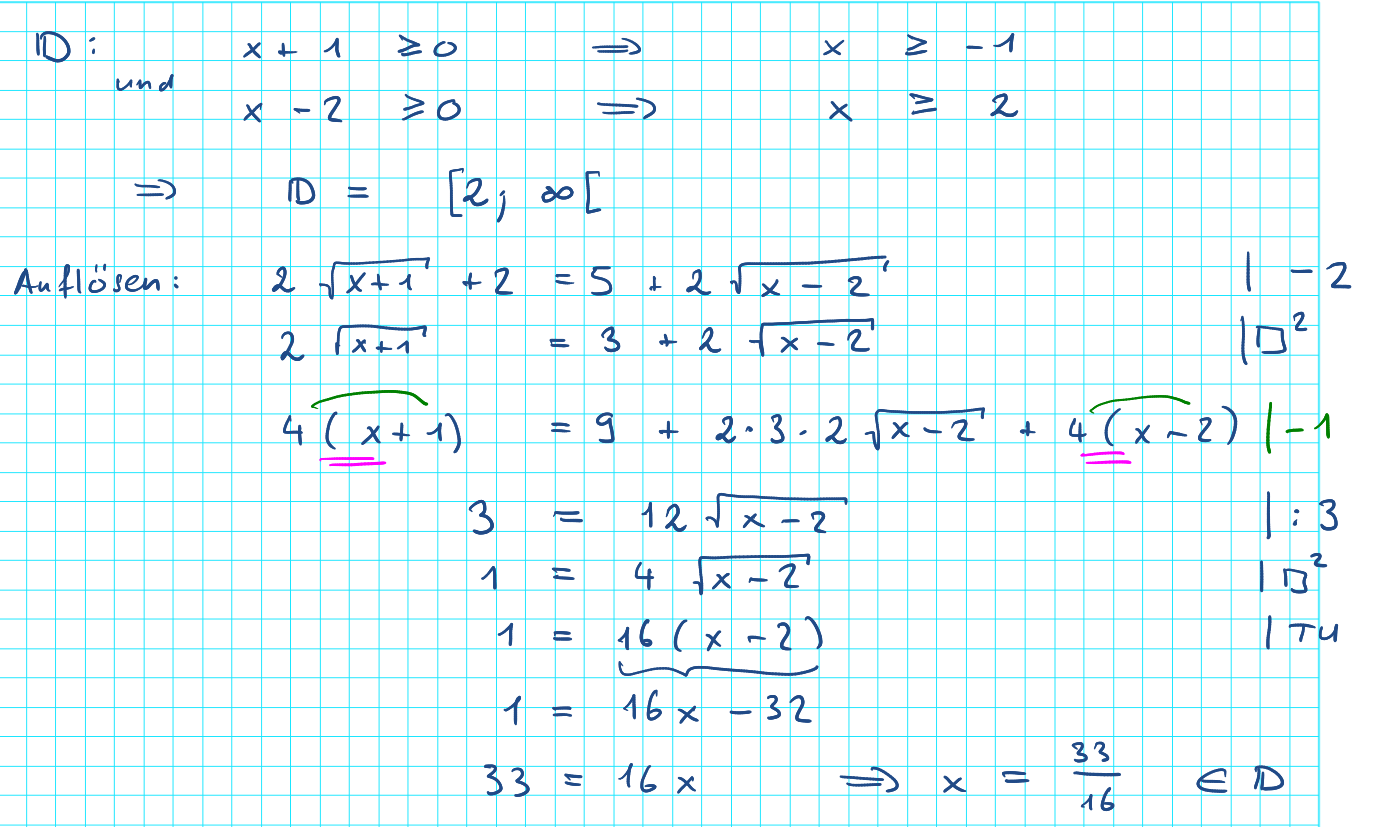 𝔻: x + 1 ≥ 0 ⟹ x ≥ -1
und
x - 2 ≥ 0 ⟹ x ≥ 2
⟹ 𝔻 = [2; ∞[
Auflösen: 2 √(x+1) + 2 = 5 + 2 √(x - 2) | - 2
2 √(x+1) = 3 + 2 √(x - 2) | □²
4 (x + 1) = 9 + 2·3·2 √(x - 2) + 4 (x - 2) | - 1
3 = 12 √(x - 2) | : 3
1 = 4 √(x - 2) | □²
1 = 16 (x - 2) | TU
1 = 16x - 32
33 = 16x ⟹ x = 33/16 ∈ 𝔻